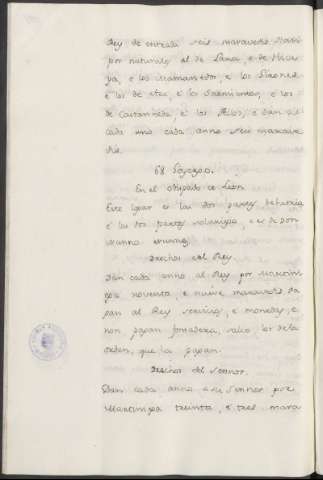 Rey de entrada seis maravedis
por naturales al de Lara, e de Vizca
ya, e los
e los de e los Sarmientos, e los
de Castanneda, e los e dan a
cada uno cada anno seis marave
dis.
68
En el obispado de Leon
Este logar es las dos partes behetria
e las dos partes solariego, e es de don
Nunno
Derechos del Rey.
Dan cada anno al Rey por Martini
ega noventa, e nueve maravedis, pa
gan al Rey servicios, e monedas, e
non pagan fonsadera, salvo los de la
orden, que la pagan.
Derechos del Sennor.
Dan cada anno a su Sennor por
Martiniega treinta, e tres mara